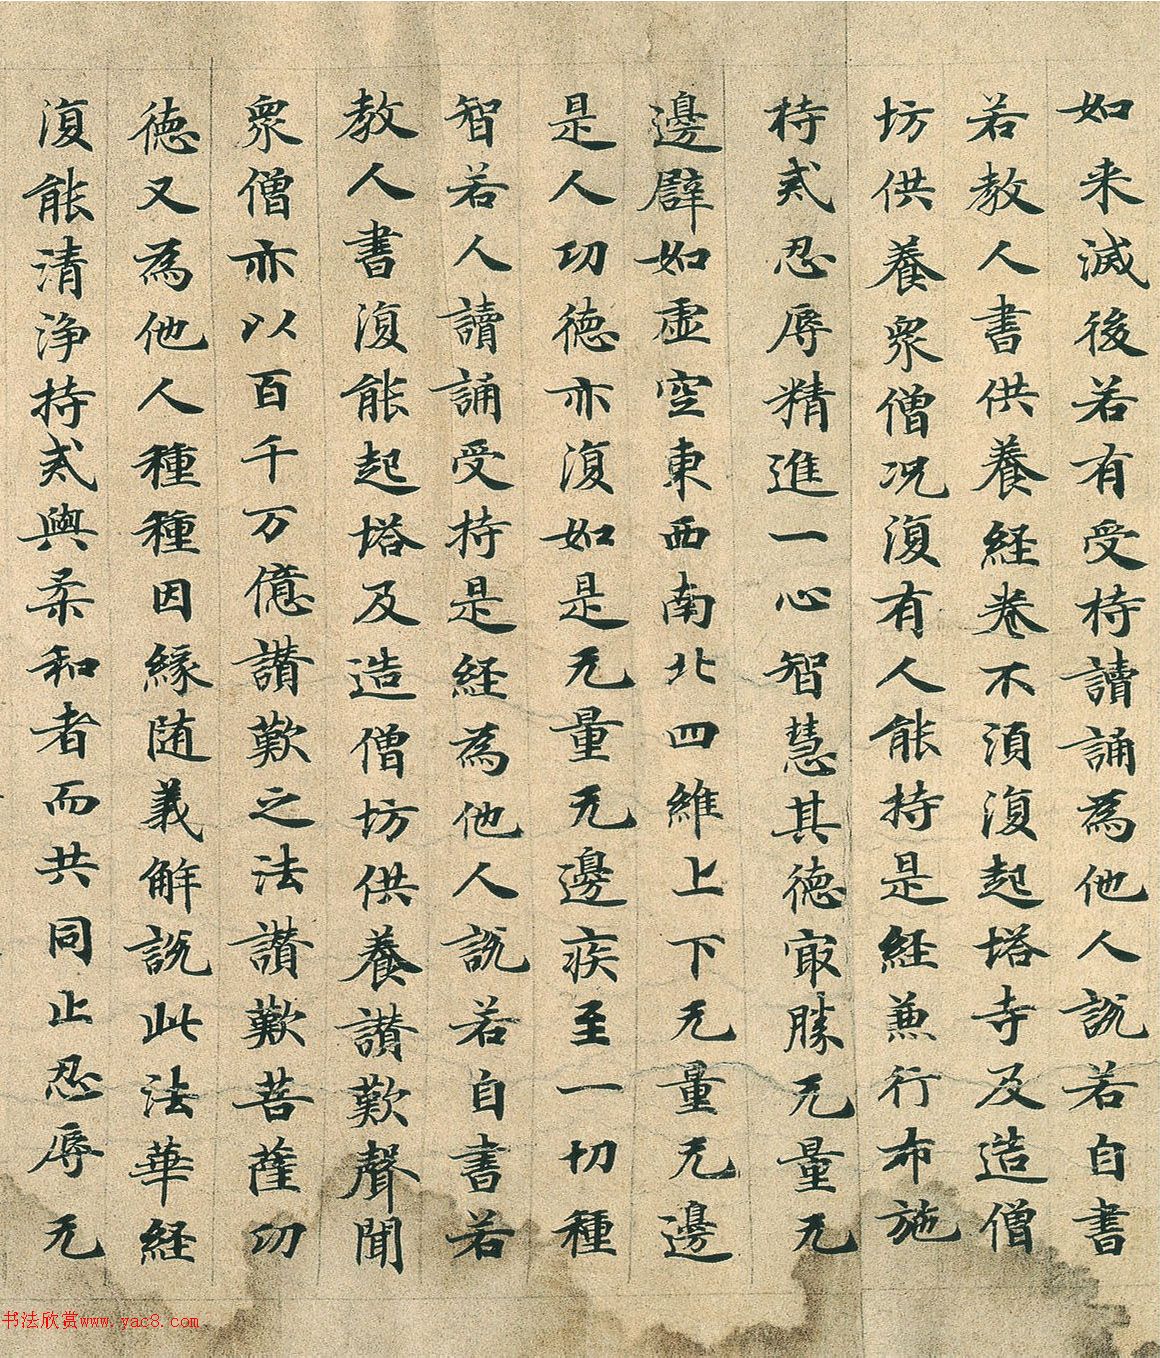 如来滅後若有受持讀誦為他人說若自書
若教人書供養経卷不須復起塔寺及造僧
坊供養衆僧况復有人能持是経兼行布施
持戒忍辱精進一心智慧其德寂勝无量无
邊譬如虛空東西南北四維上下无量无邊
是人功德亦復如是无量无邊疾至一切種
智若人讀誦受持是経為他人說若自書若
教人書復能起塔及造僧坊供養讃歎聲聞
衆僧亦以百千万億讃歎之法讃歎菩薩功
德又為他人種種因緣随義解說此法華経
復能清淨持戒與柔和者而共同止忍辱无
书法欣赏www.yac8.com